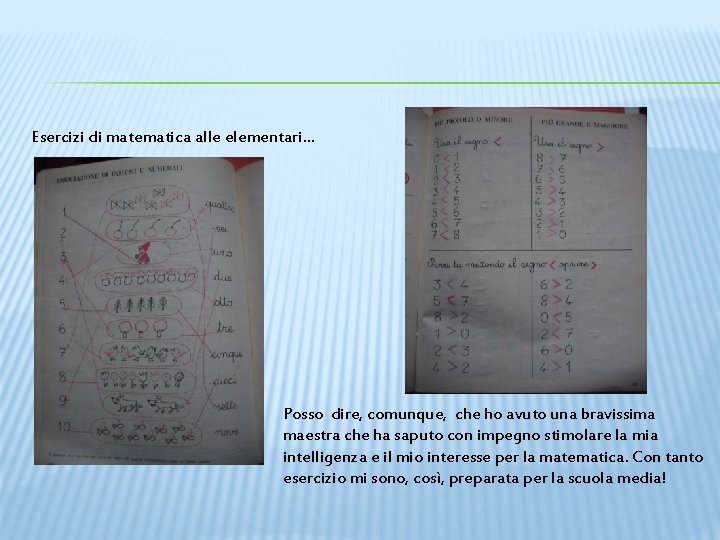 Esercizi di matematica alle elementari...
ASSOCIAZIONE DI INSIEMI E NUMERALI
1 quattro
2 sei
3 uno
4 due
5 otto
6 tre
7 cinque
8 dieci
9 sette
10 nove
PIÙ PICCOLO O MINORE
PIÙ GRANDE O MAGGIORE
Usa il segno <
Usa il segno >
0 < 1
8 > 7
1 < 2
7 > 6
2 < 3
6 > 5
3 < 4
5 > 4
4 < 5
4 > 3
5 < 6
3 > 2
6 < 7
2 > 1
7 < 8
1 > 0
Prova tu mettendo il segno < oppure >
3 < 4
6 > 2
5 < 7
8 > 4
8 > 2
0 < 5
1 > 0
2 < 7
2 < 3
6 > 0
4 > 2
4 > 1
Posso dire, comunque, che ho avuto una bravissima
maestra che ha saputo con impegno stimolare la mia
intelligenza e il mio interesse per la matematica. Con tanto
esercizio mi sono, così, preparata per la scuola media!